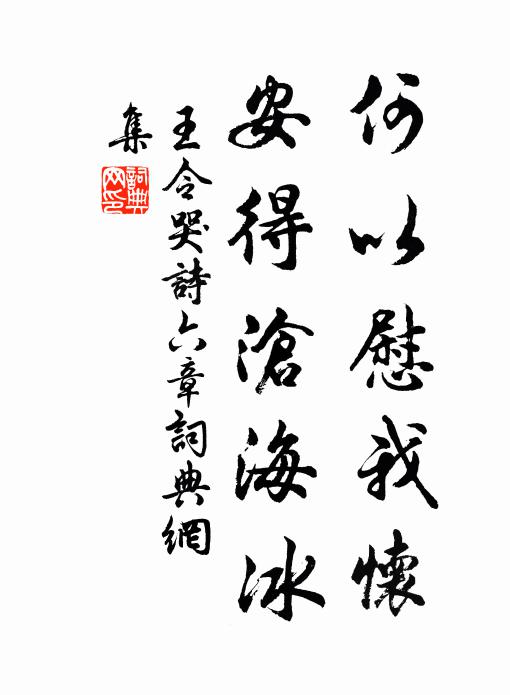 何以慰我懷
安得滄海冰
王令哭詩六章詞典網
集
詞典
网印